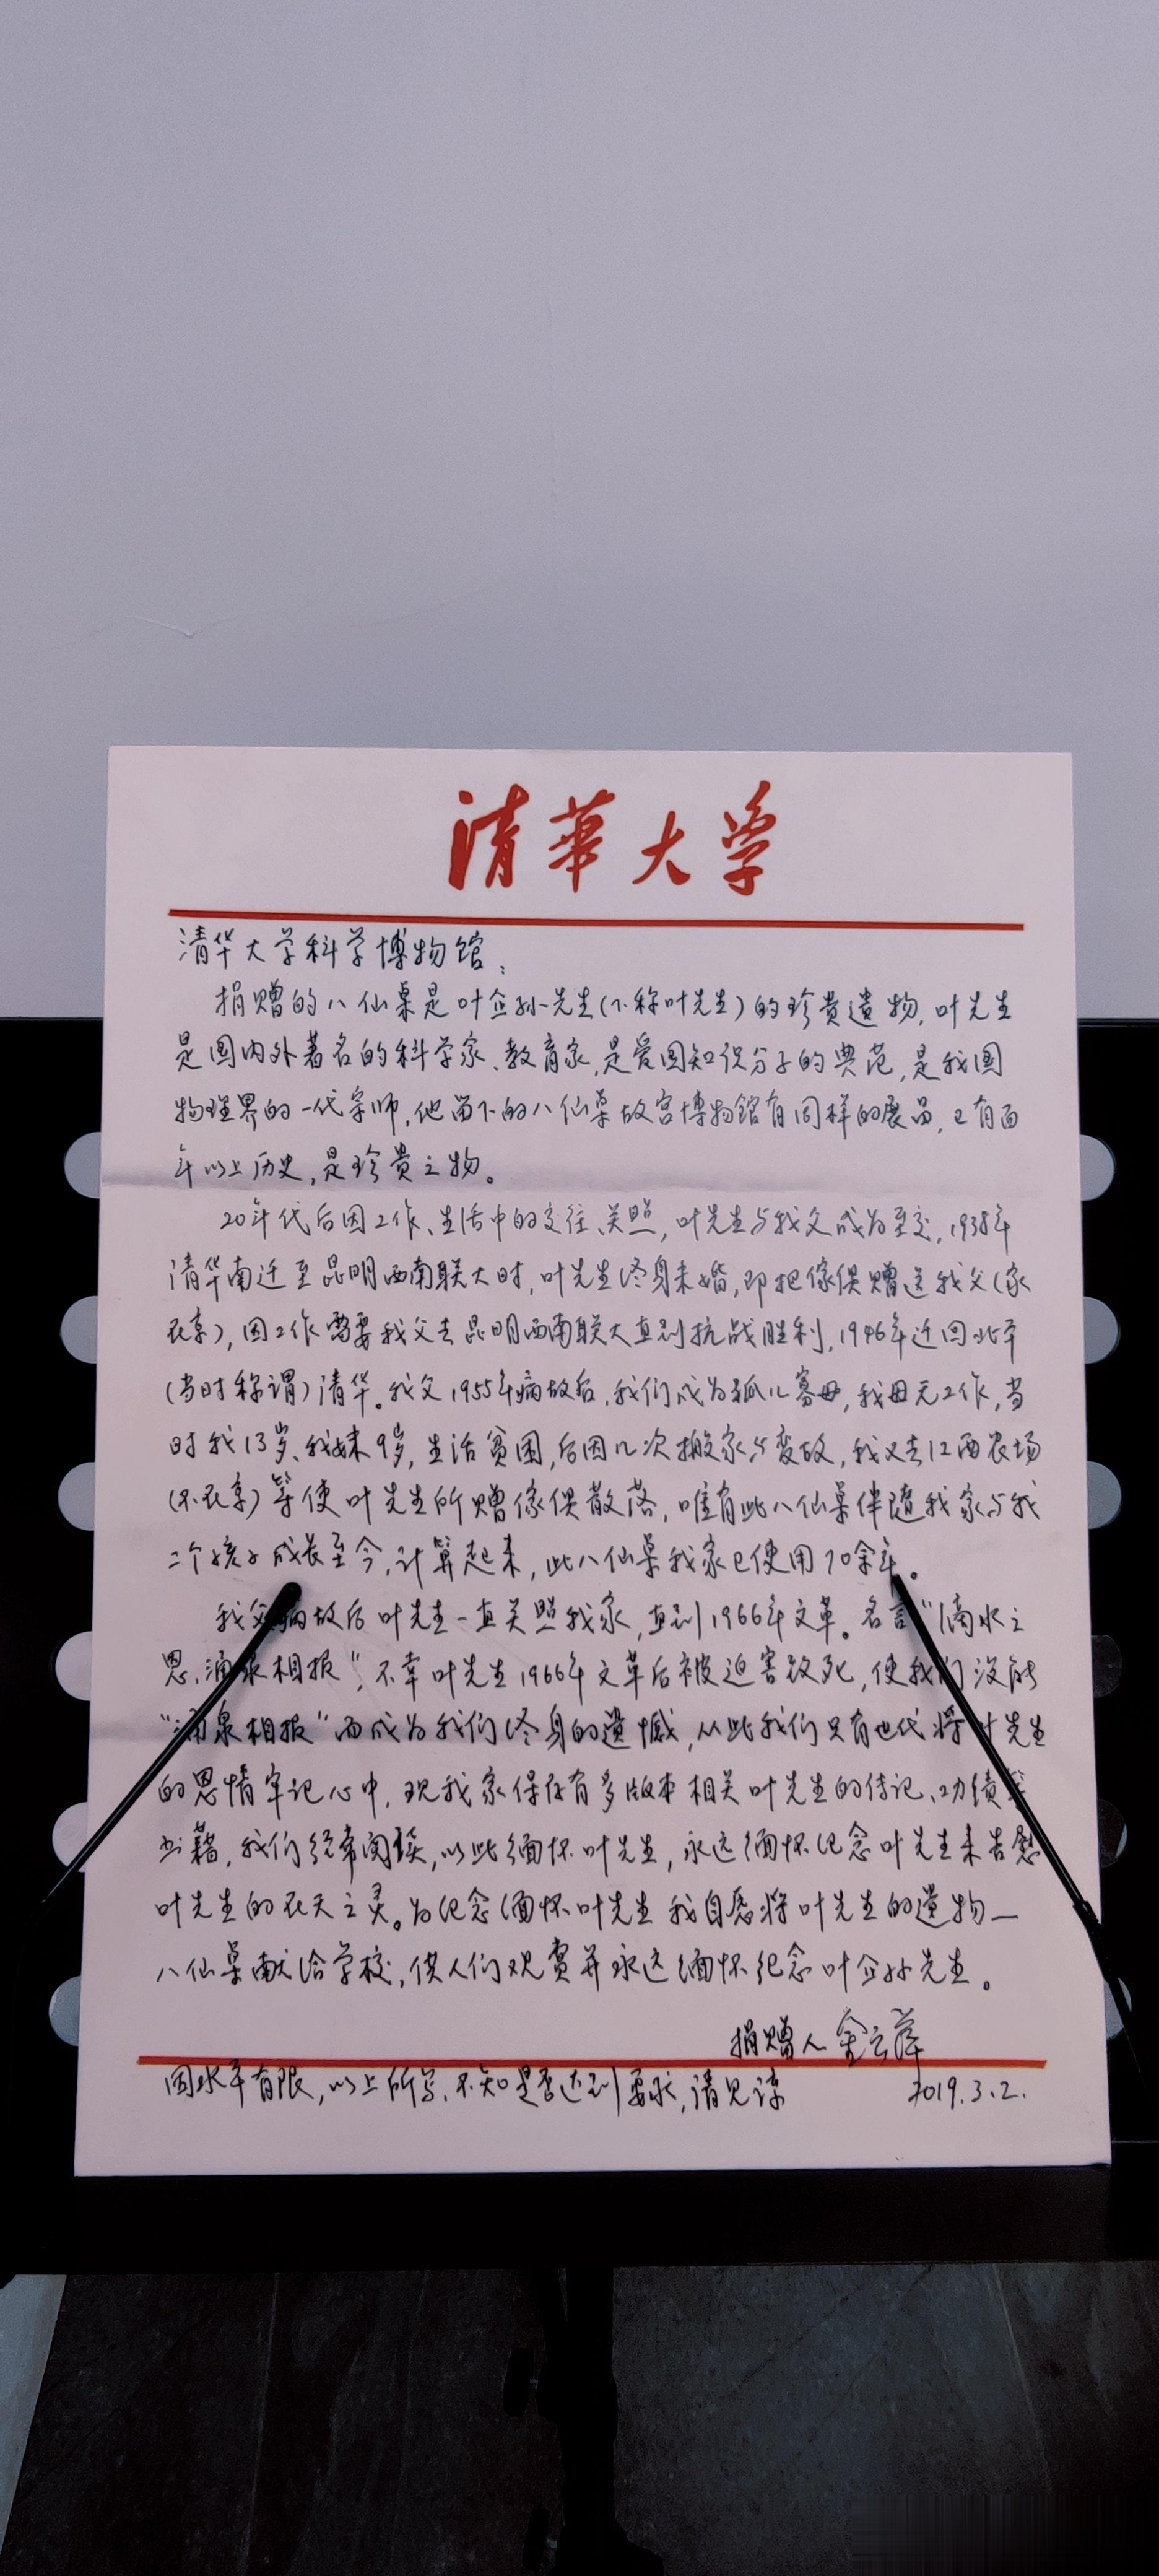 清華大学
清华大学科学博物馆:
捐赠的八仙桌是叶企孙先生(下称叶先生)的珍贵遗物,叶先生
是国内外著名的科学家、教育家,是爱国知识分子的典范,是我国
物理界的一代宗师,他留下的八仙桌故宫博物馆有同样的展品,已有百
年以上历史,是珍贵之物。
20年代后因工作、生活中的交往、关照,叶先生与我父成为至交,1938年
清华南迁至昆明西南联大时,叶先生终身未婚,即把傢俱赠送我父(家
在京),因工作需要我父去昆明西南联大直到抗战胜利,1946年迁回北平
(当时称谓)清华。我父1955年病故后,我们成为孤儿寡母,我母无工作,当
时我13岁、我妹9岁,生活贫困,后因几次搬家与变故,我又去江西农场
(不在京)等使叶先生所赠傢俱散落,唯有此八仙桌伴随我家与我
二个孩子成长至今,计算起来,此八仙桌我家已使用70余年。
我父病故后叶先生一直关照我家,直到1966年文革。名言"滴水之
恩,涌泉相报",不幸叶先生1966年文革后被迫害致死,使我们没能
"涌泉相报"而成为我们终身的遗憾,从此我们只有世代将叶先生
的恩情牢记心中,现我家保存有多版本相关叶先生的传记、功绩等
书籍,我们经常阅读,以此缅怀叶先生,永远缅怀纪念叶先生来告慰
叶先生的在天之灵。为纪念缅怀叶先生我自愿将叶先生的遗物—
八仙桌献给学校,供人们观赏并永远缅怀纪念叶企孙先生。
捐赠人 金云萍
因水平有限,以上所写,不知是否达到要求,请见谅 2019.3.2.